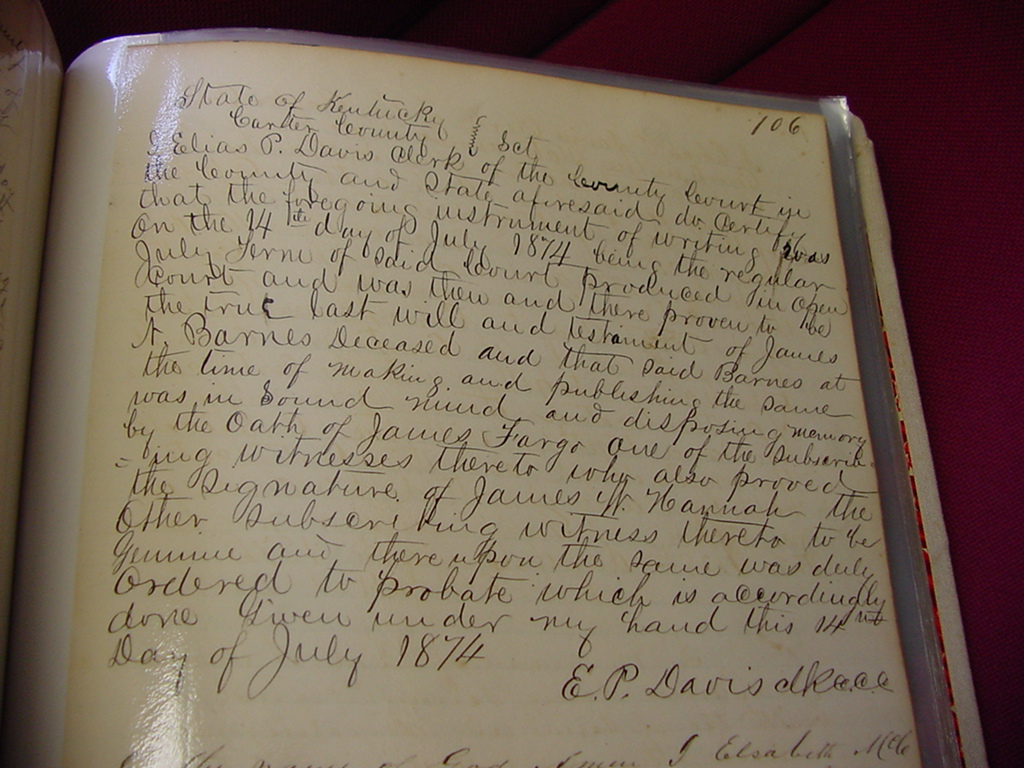 106
State of Kentucky
Carter County } Sct
I Elias P. Davis clerk of the County Court in
the County and State aforesaid do certify
that the foregoing instrument of writing was
On the 14th day of July 1874 being the regular
July Term of said Court Produced in open
Court and was then and there proven to be
the true last will and testament of James
A. Barnes Deceased and that said Barnes at
the time of making and publishing the same
was in Sound mind and disposing memory
by the Oath of James Fargo one of the Subscrib
=ing witnesses thereto who also proved
the Signature of James W. Hannah the
Other Subscribing witness thereto to be
Genuine and thereupon the same was duly
Ordered to probate which is accordingly
done Given under my hand this
Day of July 1874
E. P. Davis clk
God Amen I Elsabeth